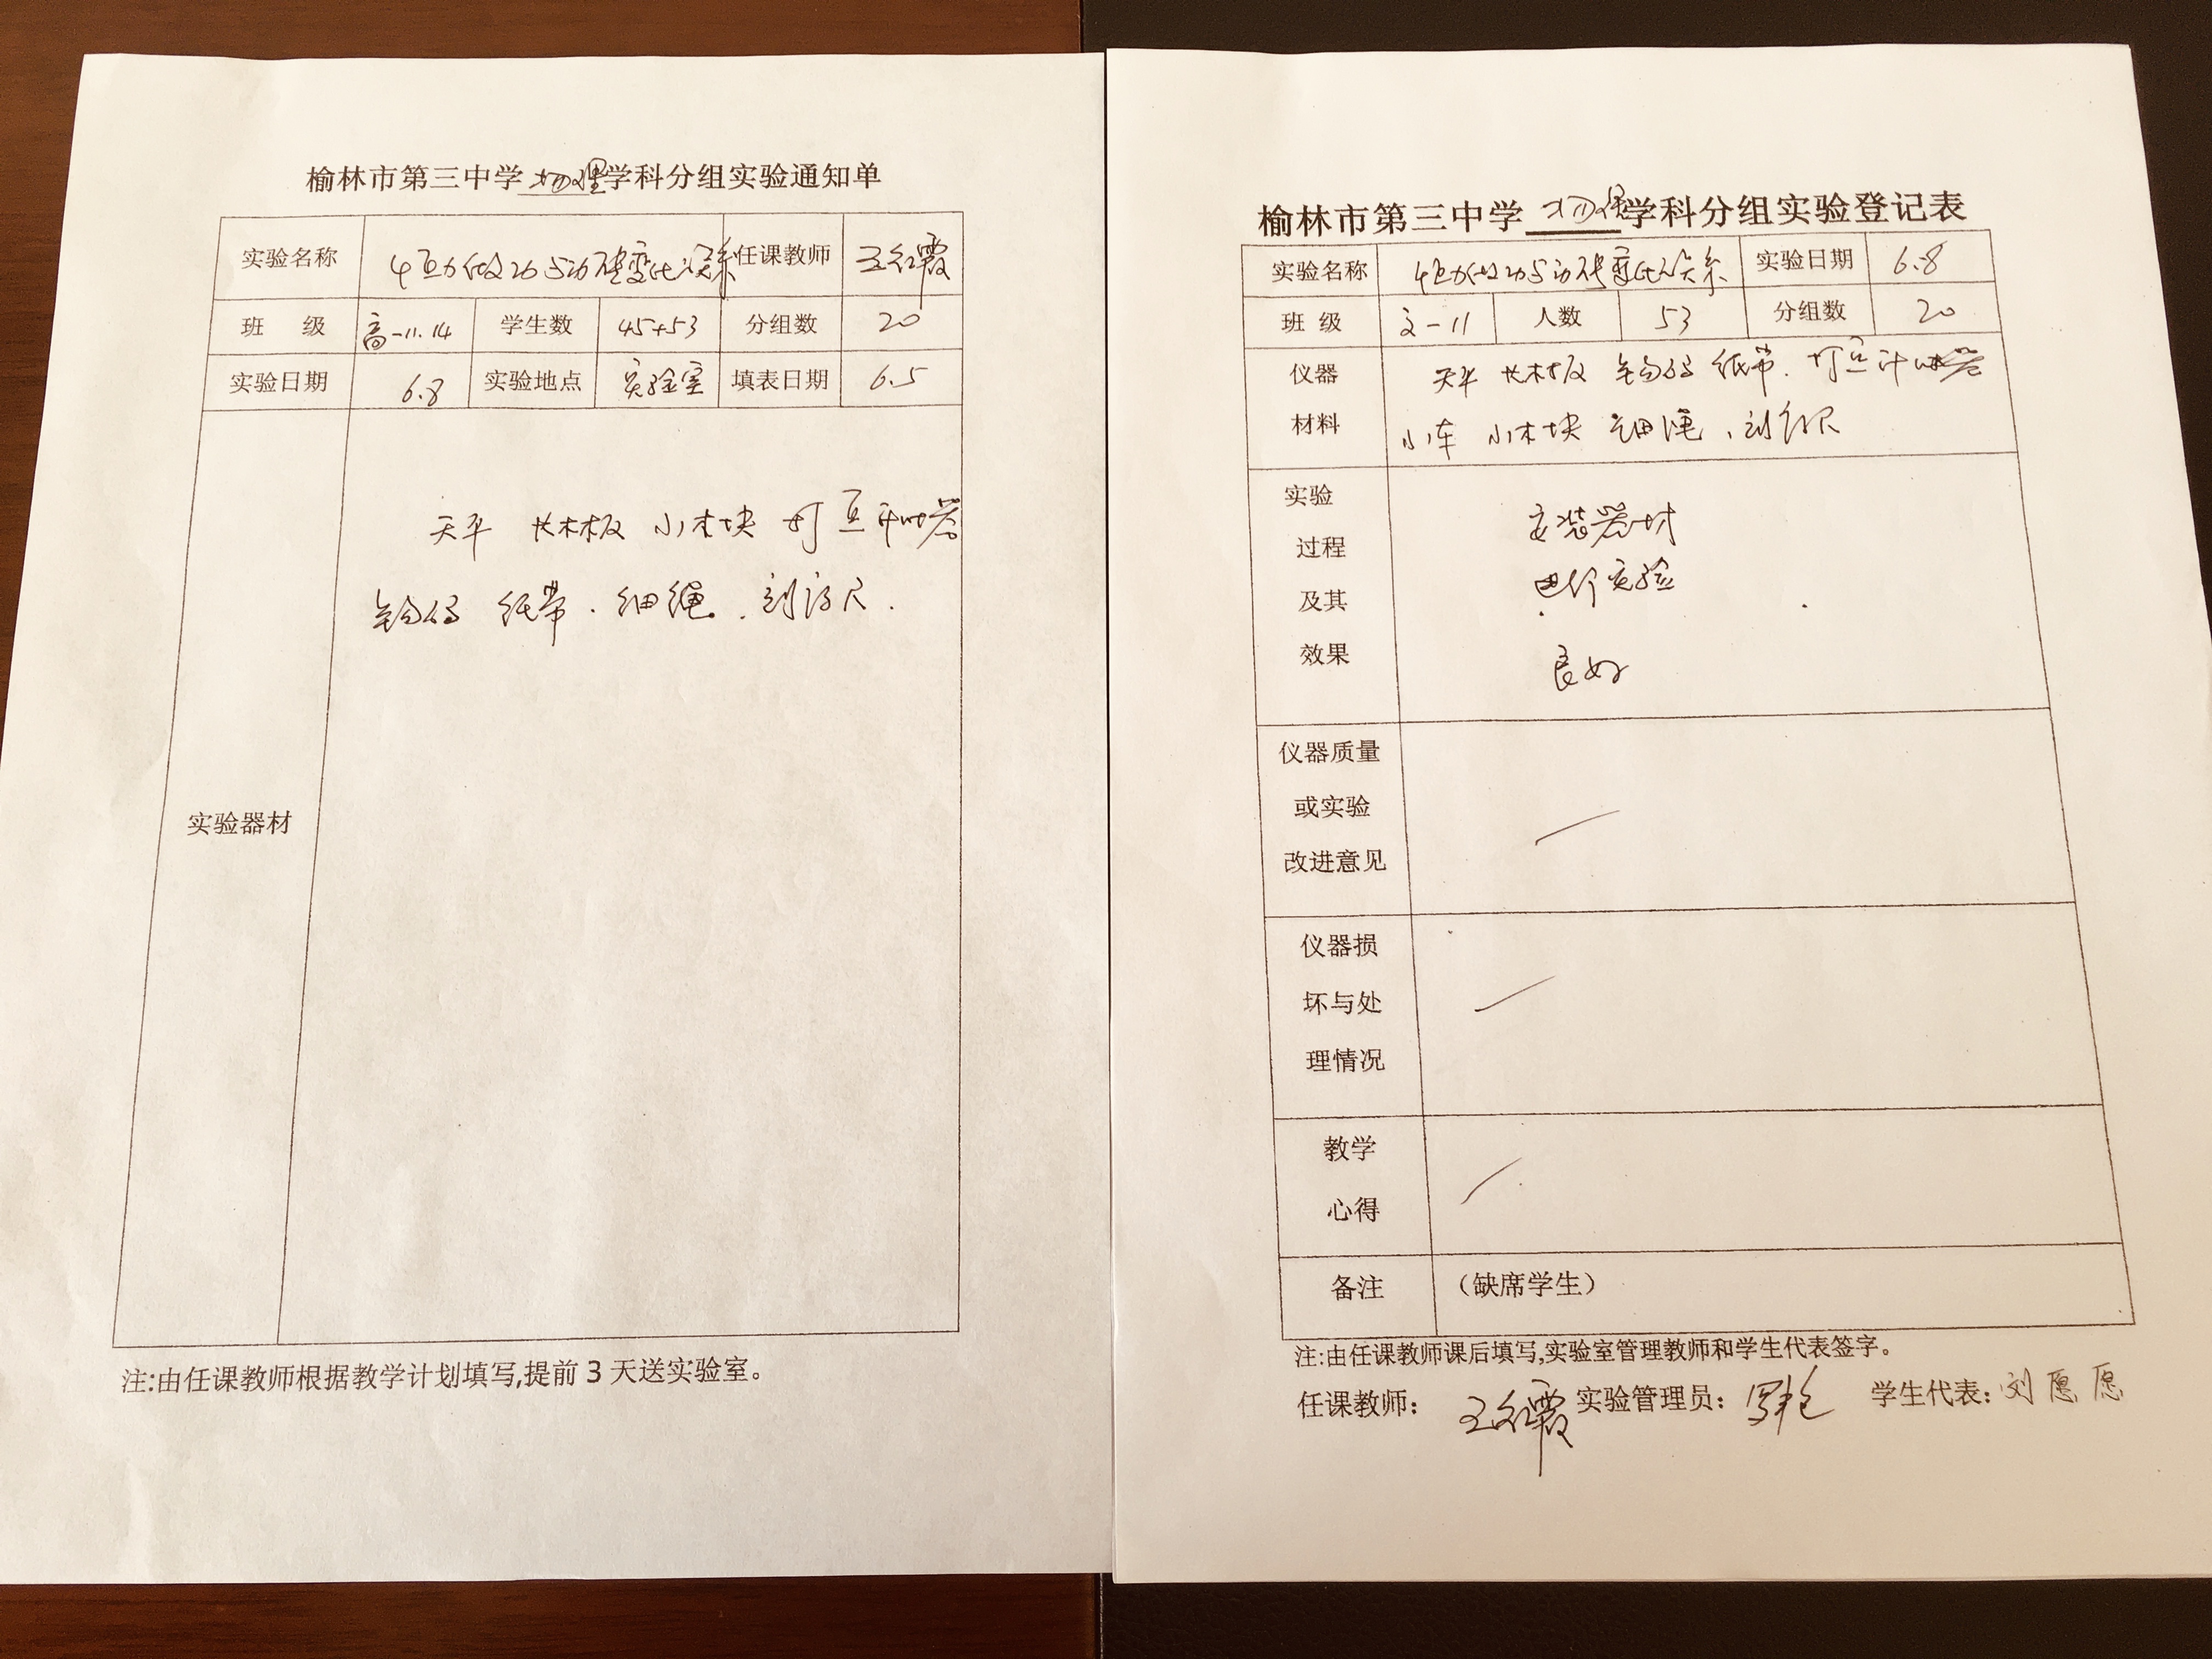 榆林市第三中学物理学科分组实验通知单
实验名称 恒力做功与动能变化关系 任课教师 王红霞
班 级 高一11.14 学生数 45+53 分组数 20
实验日期 6.8 实验地点 实验室 填表日期 6.5
实验器材
天平 长木板 小木块 打点计时器
钩码 纸带. 细绳. 刻度尺.
注:由任课教师根据教学计划填写,提前3天送实验室。
榆林市第三中学物理学科分组实验登记表
实验名称 恒力做功与动能变化关系 实验日期 6.8
班 级 高一11 人数 53 分组数 20
仪器
材料
天平 长木板 钩码 纸带. 打点计时器
小车 小木块 细绳、刻度尺
实验
过程
及其
效果
安装器材
进行实验
良好
仪器质量
或实验
改进意见
仪器损
坏与处
理情况
教学
心得
备注 (缺席学生)
注:由任课教师课后填写,实验室管理教师和学生代表签字。
任课教师: 王红霞 实验管理员: 学生代表: 刘愿愿